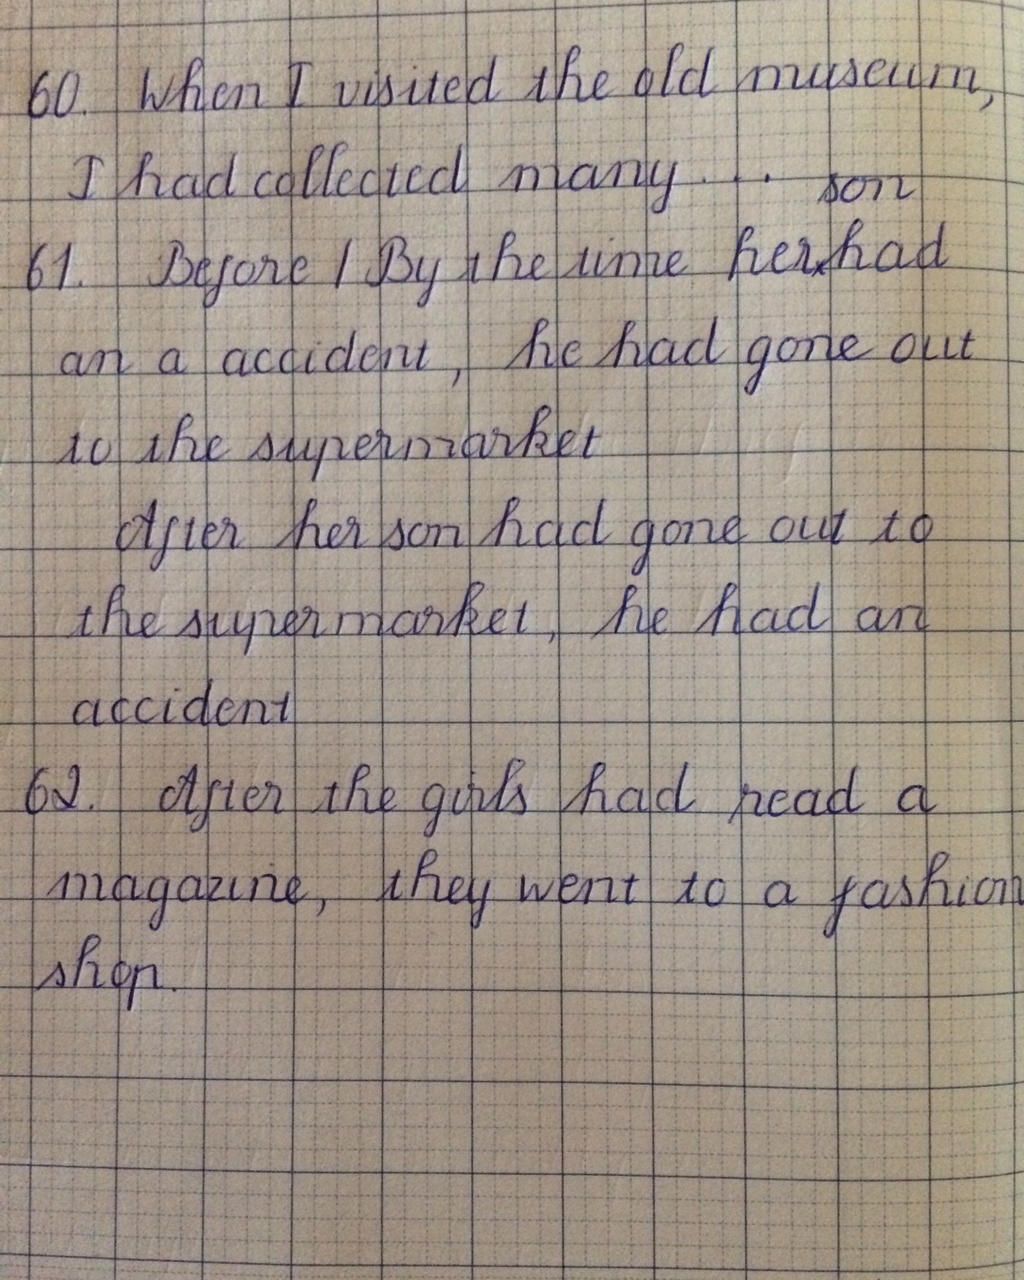 60. When I visited the old museum,
I had collected many ...
son
61. Before / By the time her had
an a accident, he had gone out
to the supermarket
After her son had gone out to
the supermarket, he had an
accident
62. After the girls had read a
magazine, they went to a fashion
shop.